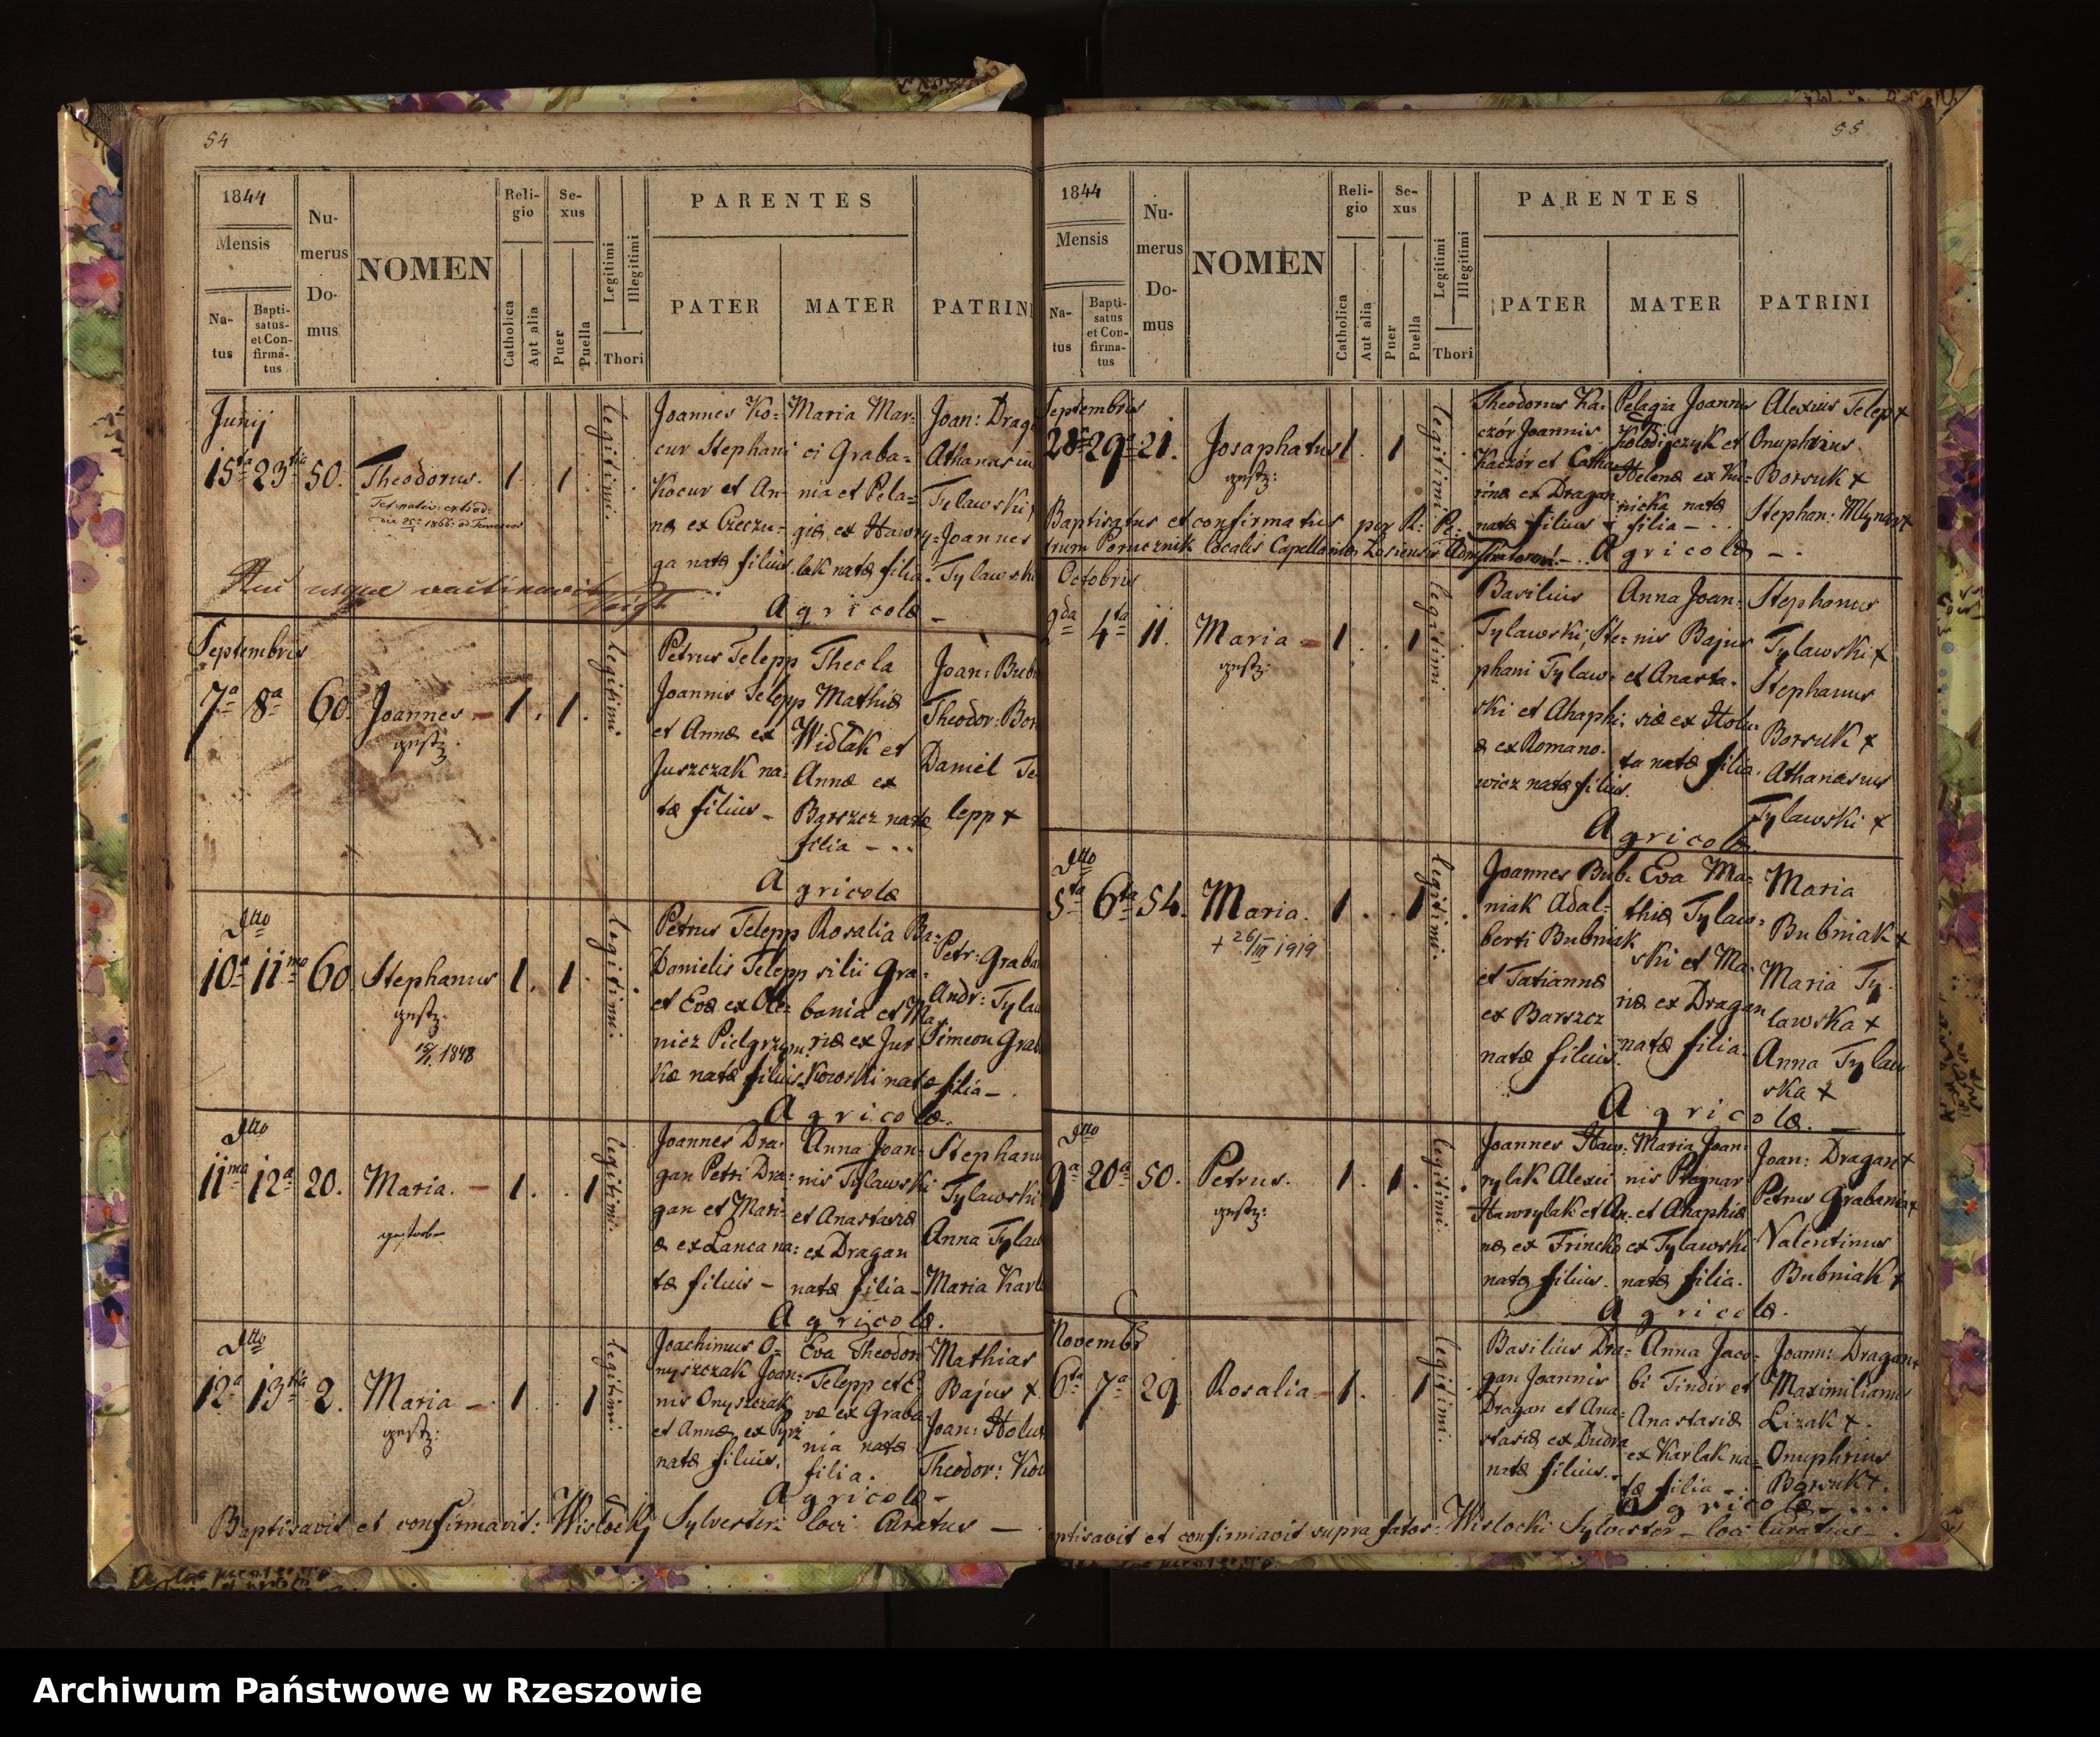 54
1844
Mensis
Na-
tus
Bapti-
satus-
et Con-
firma-
tus
Nu-
merus
Do-
mus
NOMEN
Reli-
gio
Catholica
Aut alia
Se-
xus
Puer
Puella
Legitimi
Illegitimi
Thori
PARENTES
PATER
MATER
PATRIN
Junij
15ta 23tia 50. Theodorus. 1. 1.
legitimi.
Joannes Ko-
cur Stephani
Kocur et An-
næ ex Czeczu-
ga natæ filius.
Maria Mar-
ci Graba-
nia et Pela-
giæ ex Hawry-
lak natæ filia.
Joan: Drag
Athanasiu
Tylawski
Joannes
Tylawski
Agricolæ -
Huc usque
Septembris
7a 8a 60. Joannes - 1. 1.
gestz:
legitimi.
Petrus Telepp
Joannis Telepp
et Annæ ex
Juszczak na-
tæ filius -
Thecla
Mathiæ
Widłak et
Annæ ex
Barszcz natæ
filia - ..
Joan: Bub
Theodor: Bor
Daniel Te
lepp +
Agricolæ
Dtto
10a 11ma 60. Stephanus 1. 1.
gestz:
1848
legitimi.
Petrus Telepp
Danielis Telepp
et Evæ ex Ole-
nicz Pielgrzym
kæ natæ filius.
Rosalia Ba-
silii Gra-
bania et Ma-
riæ ex Jur
kowski natæ filia -
Petr: Graba
Andr: Tyla
Simeon Grab
Agricolæ.
Dtto
11ma 12a 20. Maria. - 1. 1
legitimi.
Joannes Dra-
gan Petri Dra-
gan et Mari-
æ ex Lanca na-
tæ filius -
Anna Joan-
nis Tylawski
et Anastasiæ
ex Dragan
natæ filia -
Stephanu
Tylawski
Anna Tylaw
Maria Karl
Agricolæ.
Dtto
12a 13tia 2. Maria - 1. 1
gestz:
legitimi.
Joachimus O-
nyszczak Joan-
nis Onyszczak
et Annæ ex Pyrz
natæ filius.
Eva Theodori
Telepp et E-
væ ex Graba-
nia natæ
filia.
Mathias
Bajus +
Joan: Holu
Theodor: Ko
Agricolæ -
Baptisavit et confirmavit: Wisłocky Sylvester loci Curatus -
55
1844
Mensis
Na-
tus
Bapti-
satus
et Con-
firma-
tus
Nu-
merus
Do-
mus
NOMEN
Reli-
gio
Catholica
Aut alia
Se-
xus
Puer
Puella
Legitimi
Illegitimi
Thori
PARENTES
PATER
MATER
PATRINI
Septembris
28a 29a 21. Josaphatus 1. 1
gestz:
legitimi
Theodorus Ka-
czór Joannis
Kaczór et Catha-
rinæ ex Dragan
natæ filius
Pelagia Joannis
Kołodijczyk et
Helenæ ex Ku-
nicka natæ
filia - ..
Alexius Telep +
Onuphrius
Borsuk +
Stephan: Młynar +
Baptisatus et confirmatus per R: Pe-
trum Porucznik localis Capellaniæ
Agricolæ - .
Octobris
2da 4ta 11. Maria - 1. 1
gestz:
legitimi.
Basilius
Tylawski, Ste-
phani Tylaw-
ski et Ahaphi-
æ ex Romano-
wicz natæ filius.
Anna Joan-
nis Bajus
et Anasta-
siæ ex Holu-
ta natæ filia.
Stephanus
Tylawski +
Stephanus
Borsuk +
Athanasius
Tylawski +
Agricolæ
Dtto
5ta 6ta 54. Maria. 1. 1
+ 26/III 1919
legitimi.
Joannes Bub-
niak Adal-
berti Bubniak
et Tatiannæ
ex Barszcz
natæ filius.
Eva Ma-
thiæ Tylaw-
ski et Ma-
riæ ex Dragan
natæ filia.
Maria
Bubniak +
Maria Ty-
lawska +
Anna Tylaw
ska +
Agricolæ. -
Dtto
9a 20a 50. Petrus. 1. 1.
gestz:
legitimi.
Joannes Haw-
rylak Alexii
Hawrylak et An-
næ ex Trincko
natæ filius.
Maria Joan-
nis
et Ahaphiæ
ex Tylawski
natæ filia.
Joan: Dragan +
Petrus Grabania +
Valentinus
Bubniak +
Agricolæ.
Novembr
6ta 7a 29. Rosalia - 1. 1
legitimi.
Basilius Dra-
gan Joannis
Dragan et Ana-
stasiæ ex Dudra
natæ filius.
Anna Jaco-
bi Tindir et
Anastasiæ
ex Karlak na-
tæ filia -
Joann: Dragan +
Maximilianus
Lizak +.
Onuphrius
Borsuk +.
Agricolæ - ...
ptisavit et confirmavit supra fator: Wisłocki Sylvester - loci Curatus - .
Archiwum Państwowe w Rzeszowie